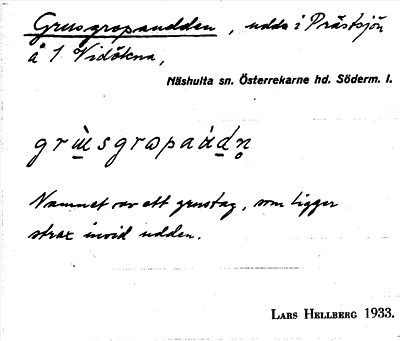 Grusgropaudden, udde i Prästsjön
å 1 Vidökna,
Näshulta sn. Österrekarne hd. Söderm. l.
grùsgropaùdn
Namnet av ett grustag, som ligger
strax invid udden.
LARS HELLBERG 1933.